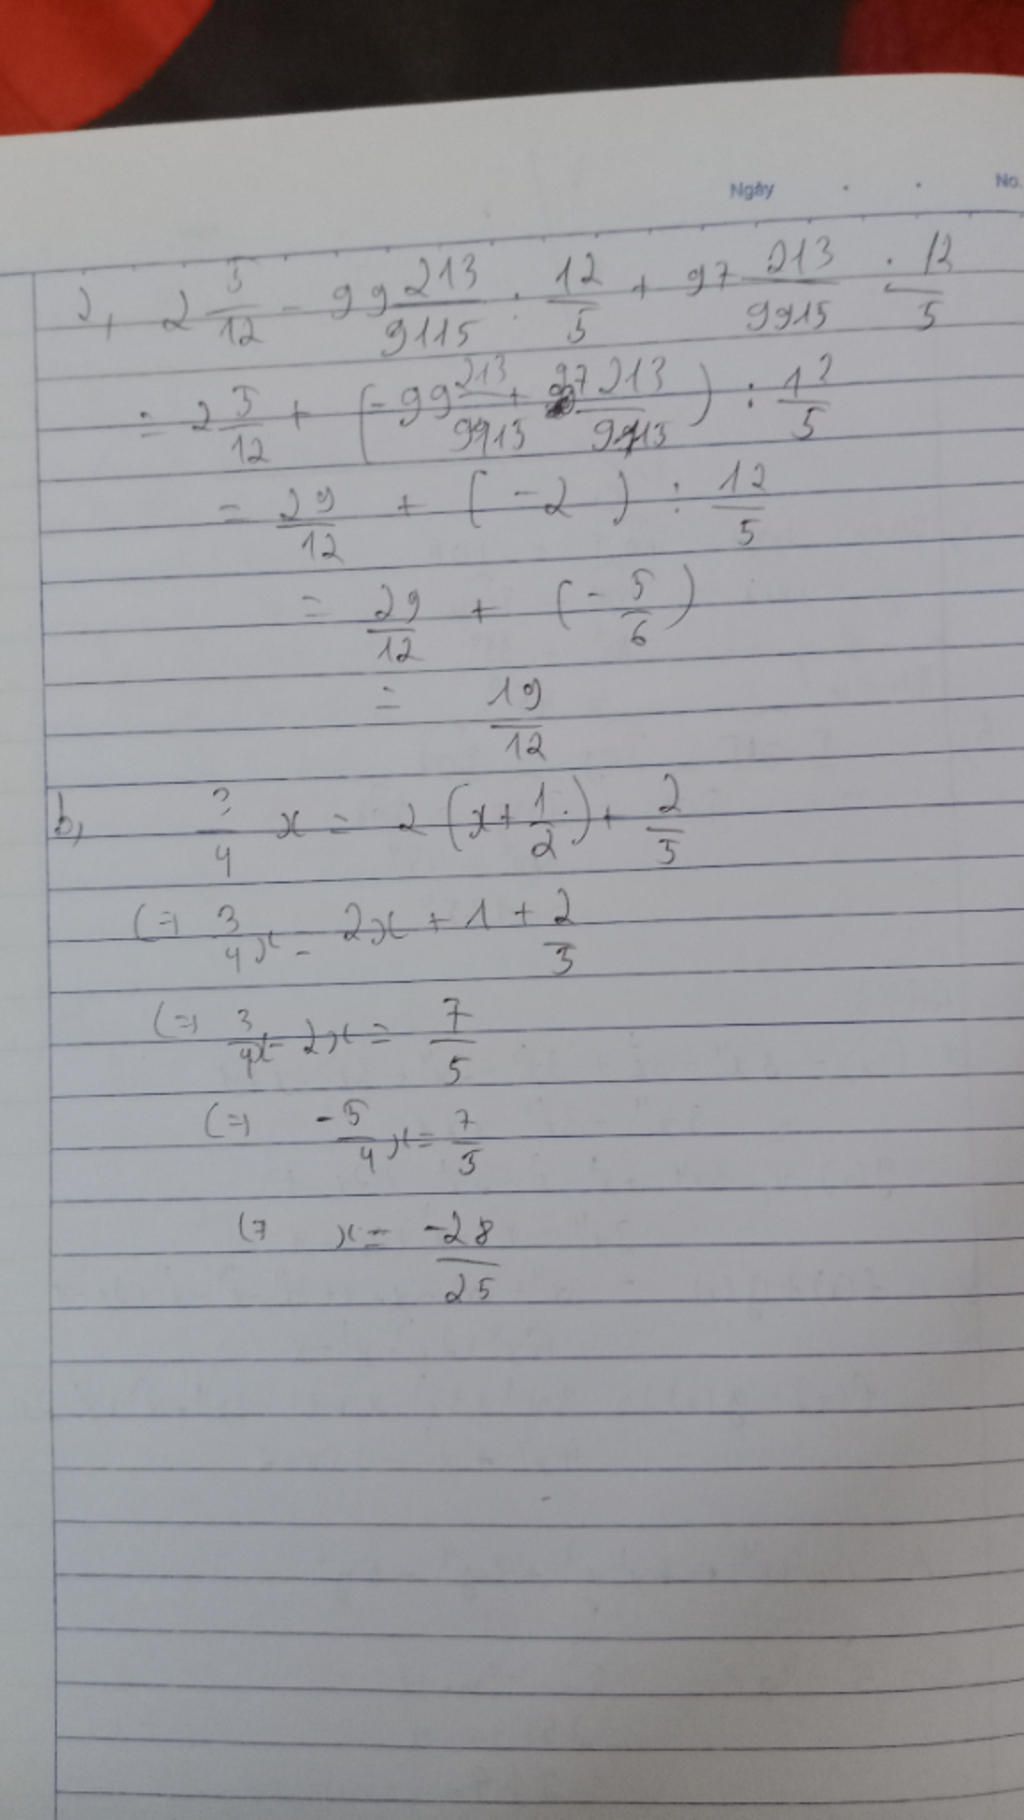 Ngày . . No.
a, 2 5/12 - 99 213/9115 : 12/5 + 97 213/9915 : 12/5
= 2 5/12 + (-99 213/9913 + 97 213/9913) : 12/5
= 29/12 + (-2) : 12/5
= 29/12 + (-5/6)
= 19/12
b, 3/4 x = 2 (x + 1/2) + 2/5
(=) 3/4 x = 2x + 1 + 2/5
(=) 3/4 x - 2x = 7/5
(=) -5/4 x = 7/5
(= x = -28/25